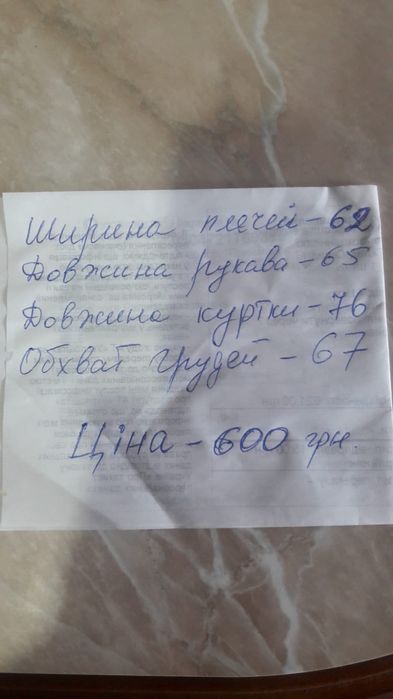 Ширина плечей - 62
Довжина рукава - 65
Довжина куртки - 76
Обхват грудей - 67
Ціна - 600 грн.